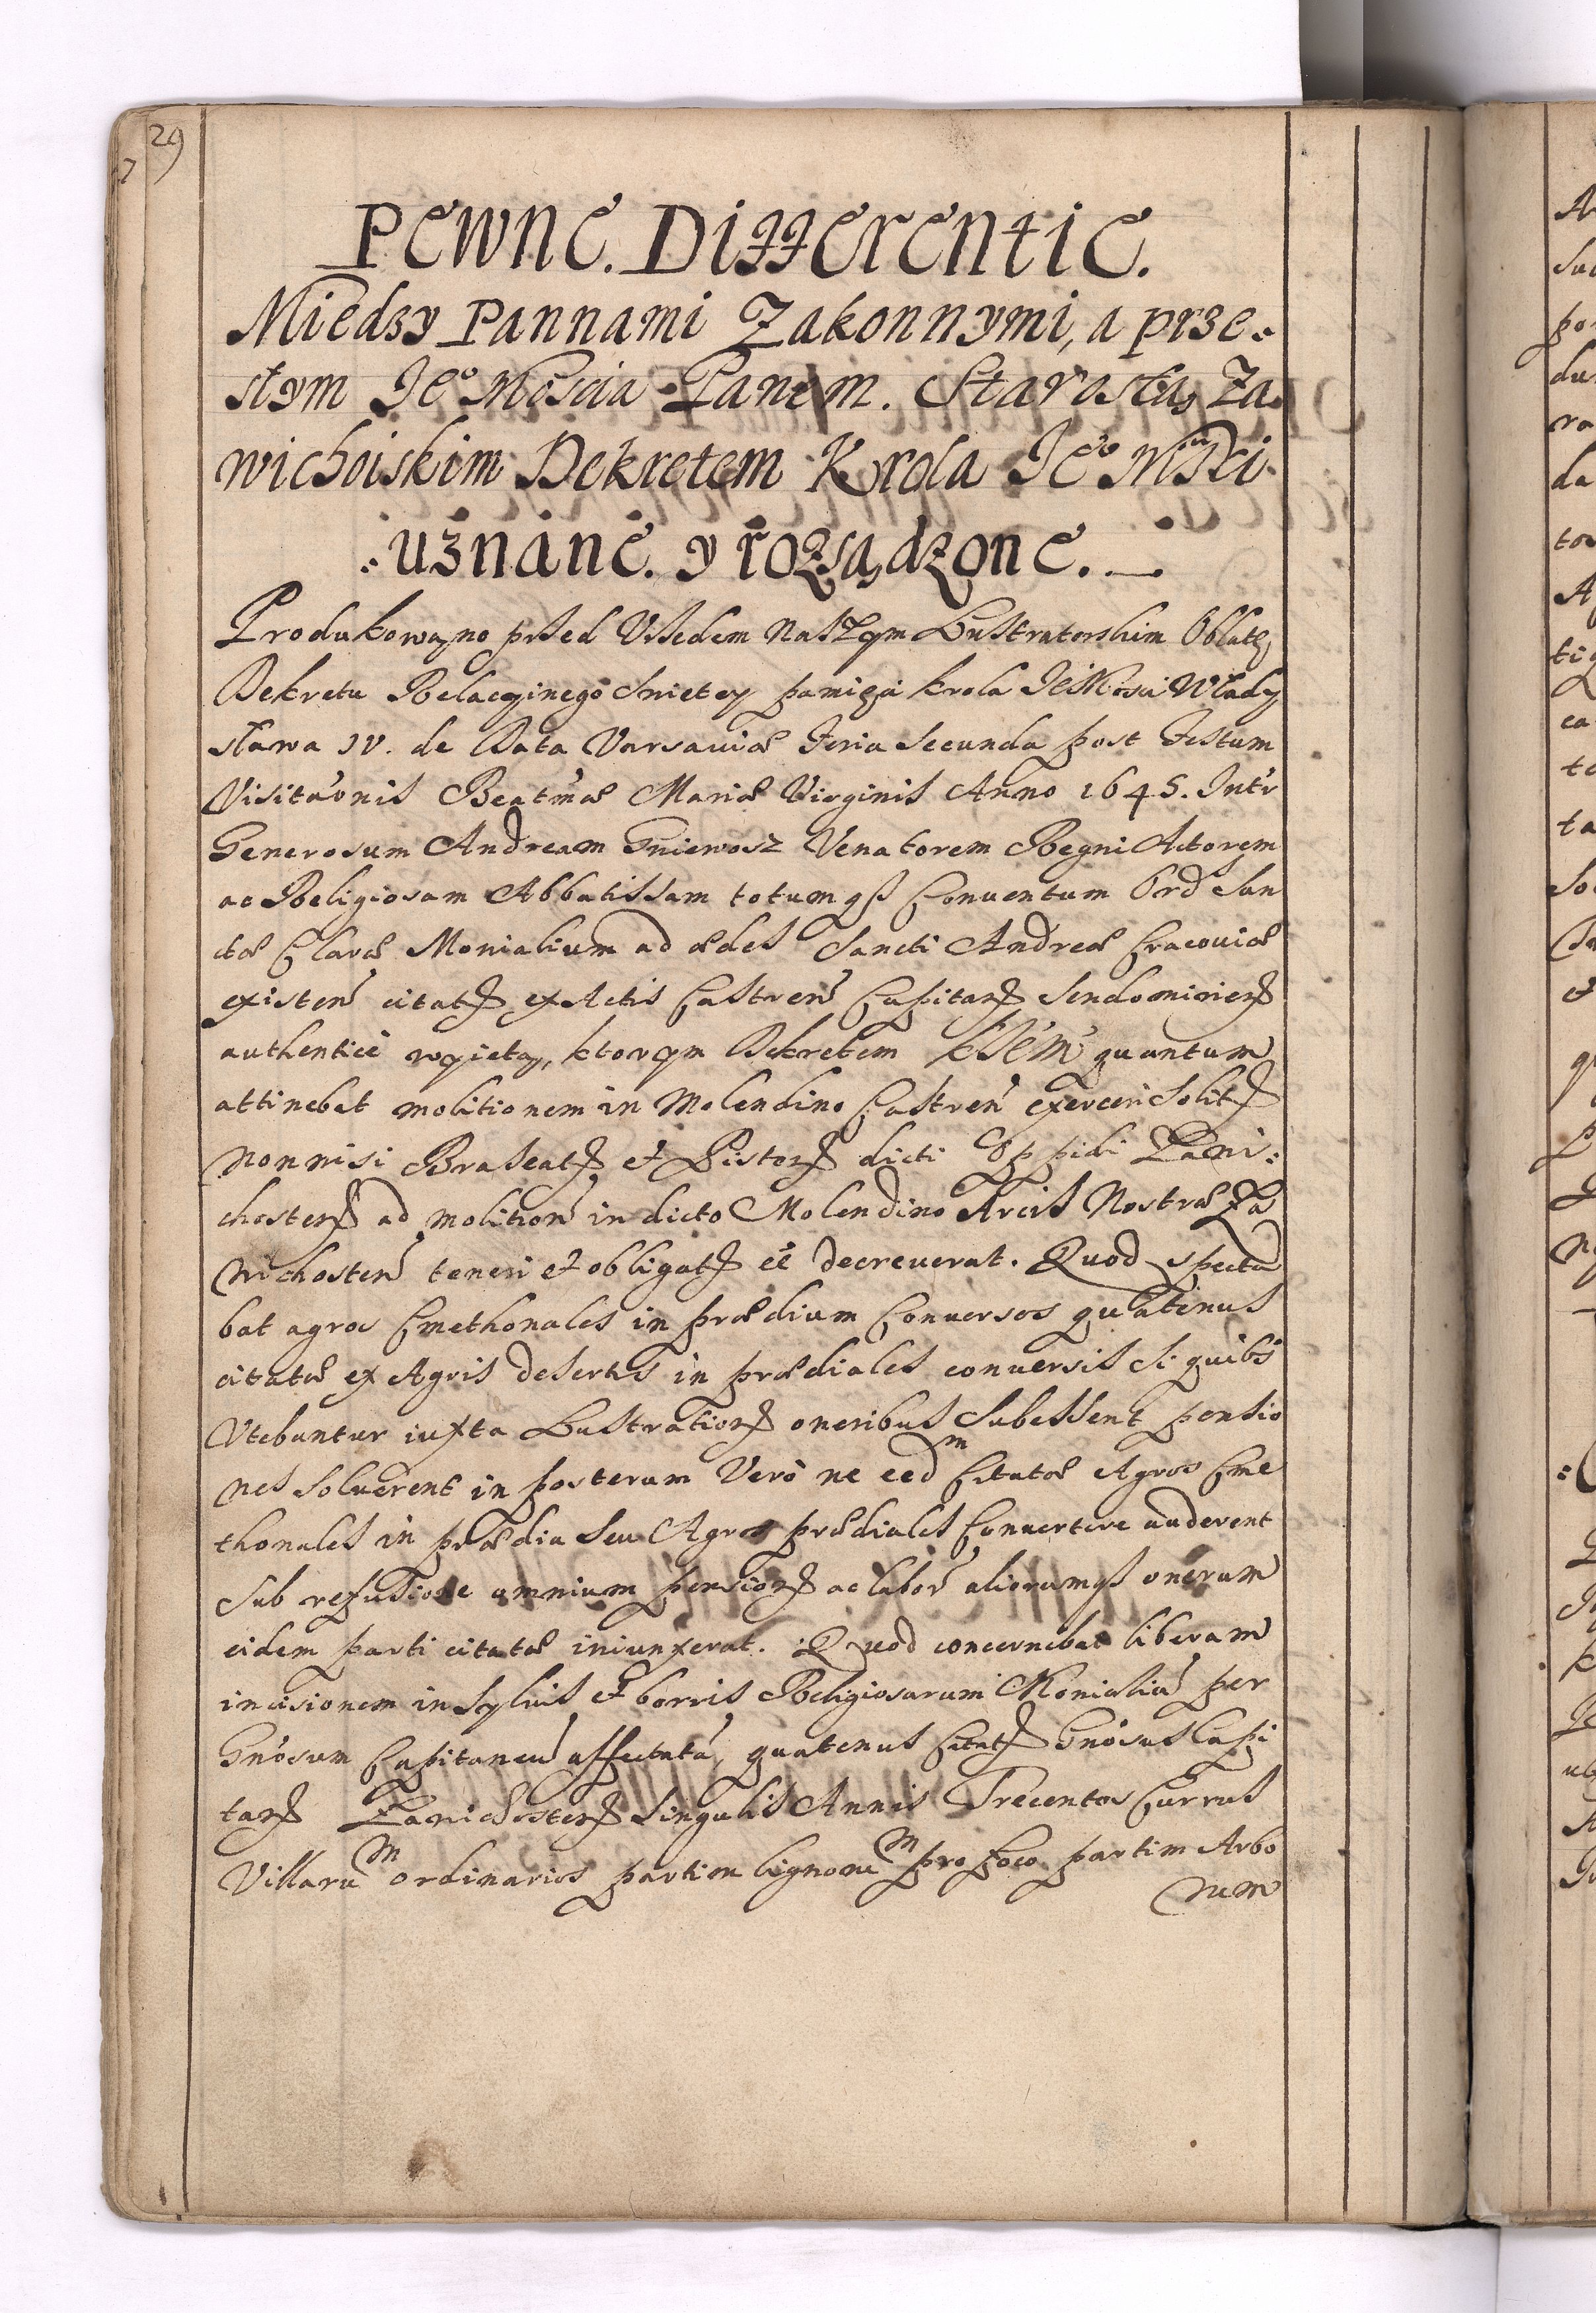 29
Pewne. Differentie.
Miedzy Pannami Zakonnymi, a prze:
słym Ieº Mościa Panem. Starostą Za
wichoiskim Dekretem Krola Ieº Mści
uznane. y rozsądzone.
Produkowano przed Vrzedem Naszym Lustratorskim Oblatę
Dekretu Relacyinego Swietey pamięci krola IeºMosci Włady
sława IV. de Data Varsauiæ Feria Secunda post Festum
Visitaōnis Beatmæ Mariæ Virginis Anno 1645. Intr
Generosum Andream Gniewosz Venatorem Regni Actorem
ac Religiosam Abbatissam totumqß Conuentum Ord San
ctæ Claræ Monialium ad ædes Sancti Andreæ Cracouiæ
existen citatß ex Actis Castren Capitanß Sendomirienß
authentice wyięty, ktorym Dekretem quantum
attinebat molitionem in Molendino Castren exerceri Solitß
non nisi Braseatß et Pistorß dicti Oppidi Zawi:
chostenß ad molition in dicto Molendino Arcis Nostræ Za
wichosten teneri et obligatß eē decreuerat. Quod specta
bat agros Cmethonales in prædium Conuersos quatinus
citatæ ex Agris desertis in prædiales conuersis Si quibs
Vtebuntur iuxta Lustrationß oneribus Subessent pensio
nes Soluerent in posterum Verò ne eedm Citatæ Agros Cme
thonales in prædia Seu Agros prædiales Conuertere auderent
Sub refusione omnium pensionß ac labor aliorumqß onerum
eidem parti citatæ iniunxerat. Quod concernebat liberam
incisionem in Syluis et borris Religiosarum Monialiū per
Gnōsum Capitaneū affectatā, quatenus Citatß Gnōsus Capi
tanß Zawichostenß Singulis Annis Trecentos Currus
Villarum ordinarios partim lignorum pro foco partim Arbo
rum